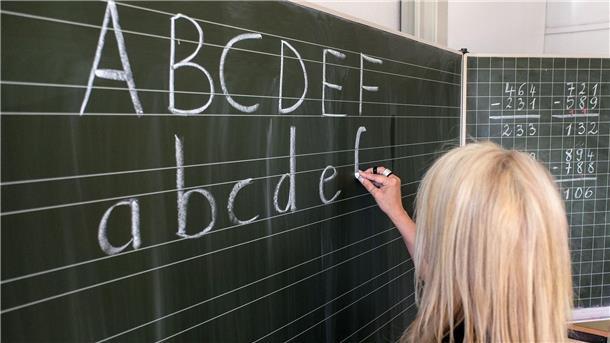 ABCDEF
abcdef
464 721
- 231 - 589
233 132
894
- 788
106